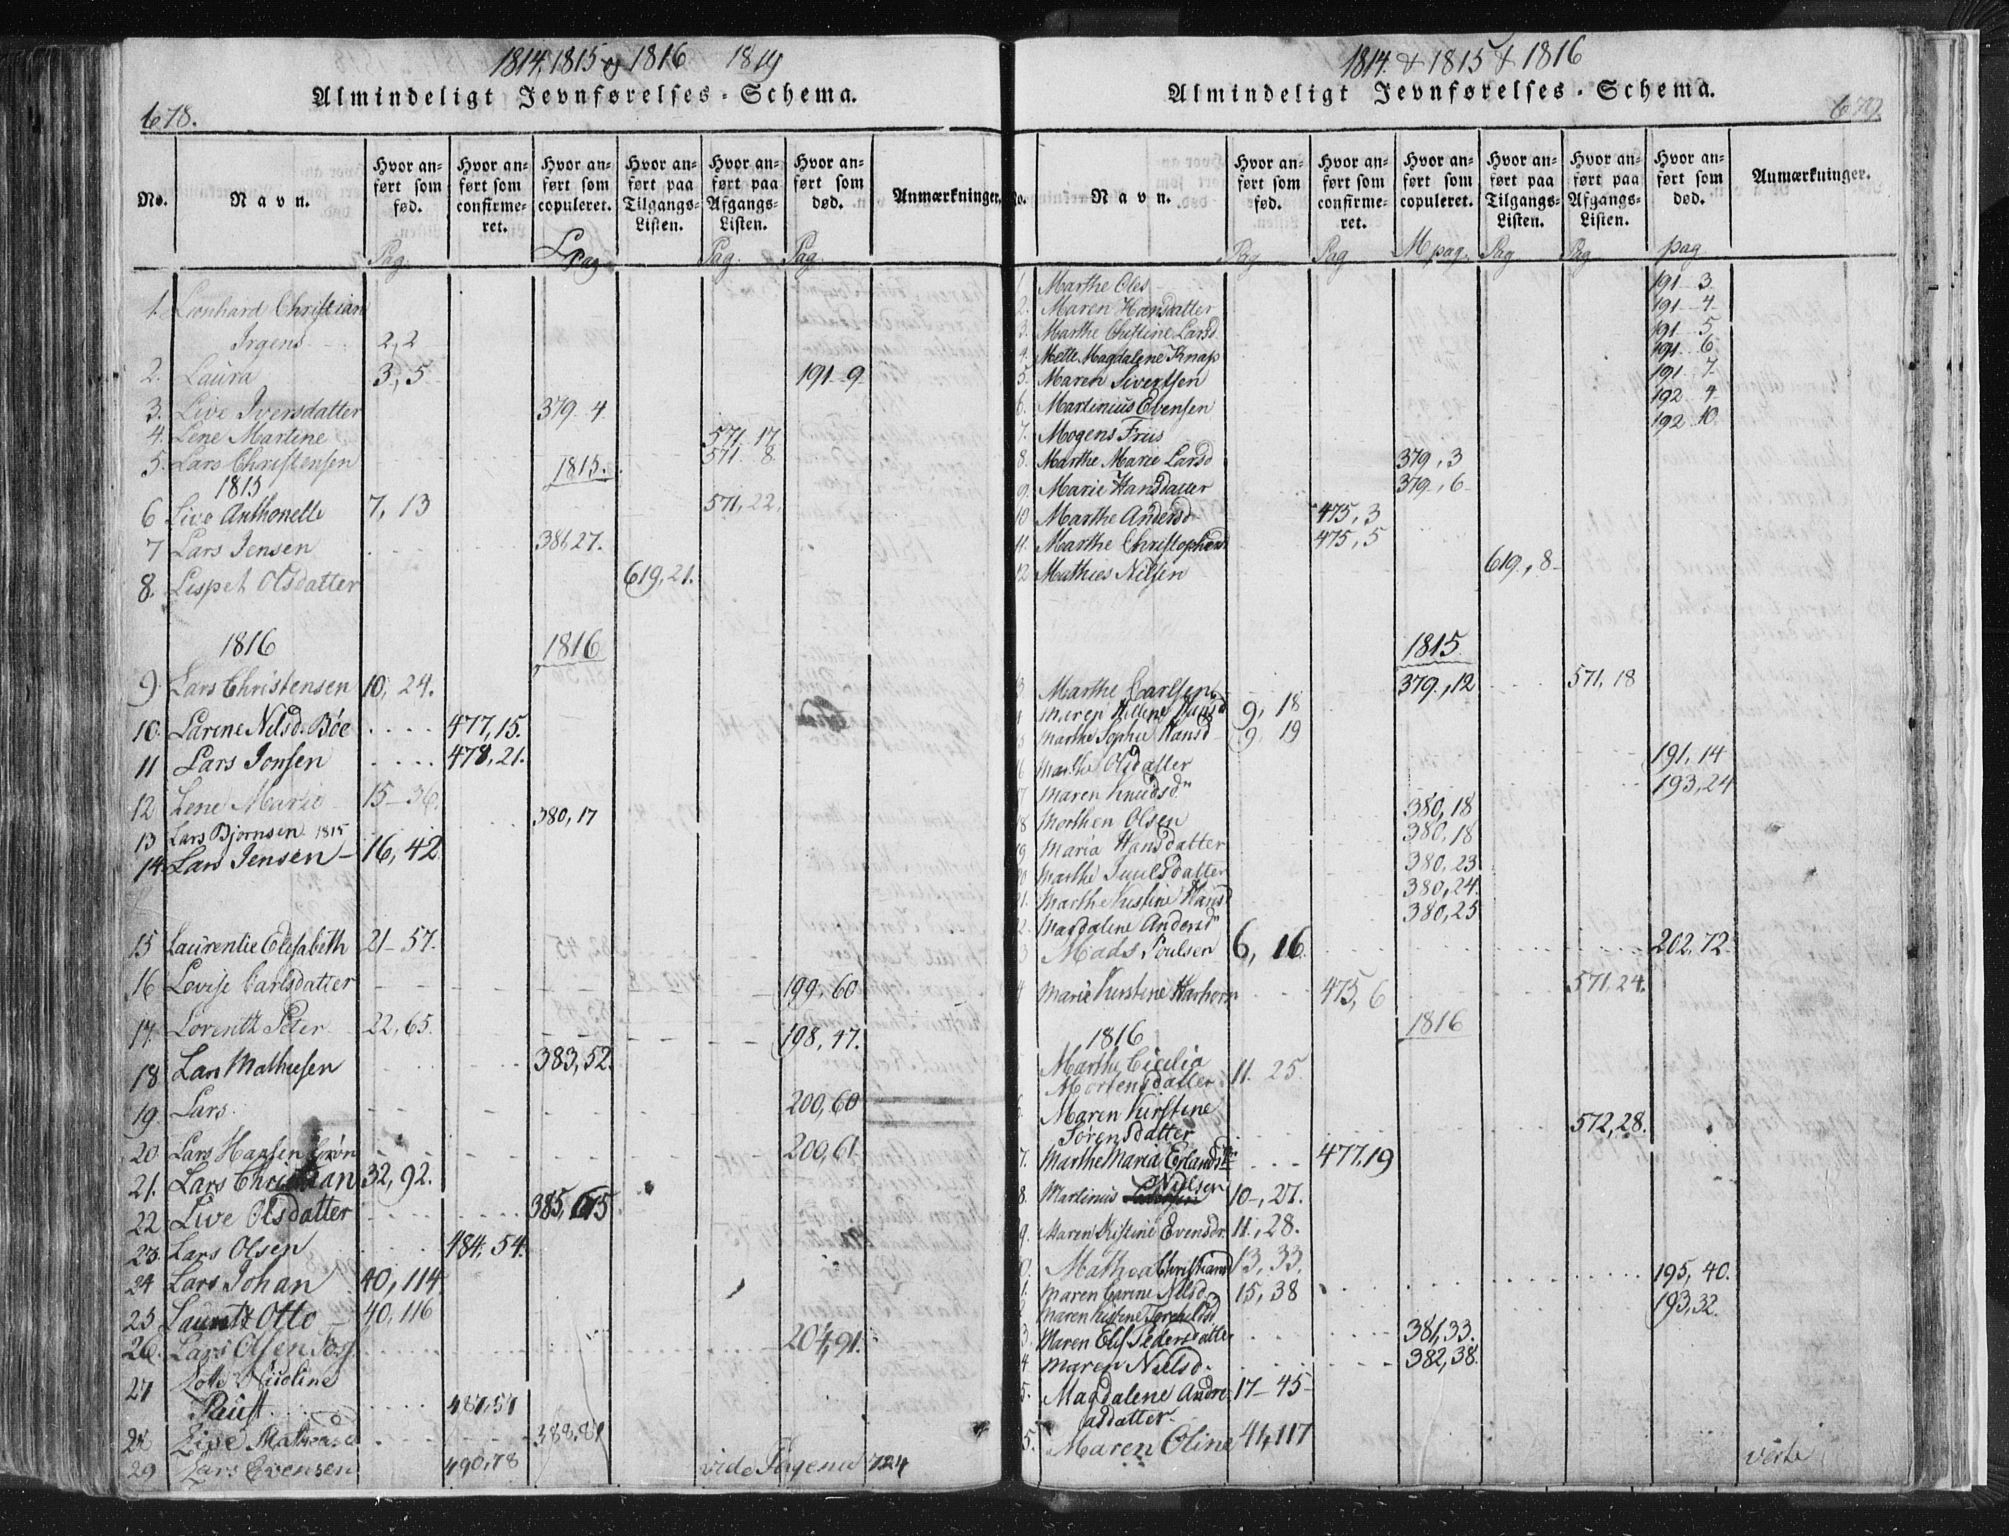 1814, 1815 og 1816 1819
Almindeligt Jevnførelses-Schema.
678.
No.
Navn.
Hvor anført som fød.
Hvor anført som confirmeret.
Hvor anført som copuleret.
Hvor anført paa Tilgangs-Listen.
Hvor anført paa Afgangs-Listen.
Hvor anført som død.
Anmærkninger.
Pag. L pag Pag. Pag
1. Leonhard Christian
Irgens 2,2
2. Laura 3,5 191-9
3. Live Iversdatter 379-4
4. Lene Martine 571-17
5. Lars Christensen 571-8
1815 1815.
6 Live Anthonette 7,13 571,22.
7 Lars Jensen 381,27.
8. Lispet Olsdatter 619,21.
1816 1816
9. Lars Christensen 10,24.
10. Larene Nilsd. Bóe 477,15.
11 Lars Jonsen 478,21.
12 Lene Marie 15-36.
13 Lars Bjornsen 1815 380,17
14. Lars Jensen 16,42
15 Laurentie Elisabeth 21-57.
16 Lovise Carlsdatter 199,60
17. Lorentz Peter 22,65. 198,47.
18 Lars Mathiesen 383,52.
19. Lars 200,60
20 Lars Hansen Grøn 200,61
21. Lars Christian 32,92.
22 Live Olsdatter 385,
23. Lars Olsen 484.54.
24 Lars Johan 40,114.
25 Otto 40,116
26. Lars Olsen 204,91.
27
487,57
28 Live 388,81
29 Lars Evensen 490,78 vide 724
1814. & 1815 & 1816
Almindeligt Jevnførelses-Schema.
679.
No.
Navn.
Hvor anført som fød.
Hvor anført som confirmeret.
Hvor anført som copuleret.
Hvor anført paa Tilgangs-Listen.
Hvor anført paa Afgangs-Listen.
Hvor anført som død.
Anmærkninger.
Pag Pag M pag. Pag Pag pag
1. Marthe Oles 191 3
2. Maren Hansdatter 191-4
3. Marthe Christine Larsd 191 5
4. Mette Magdalene Knap 191 6
5. Maren Sivertsen 191 7
6. Martinius Evensen 192 4
7. Mogens Friis 192 10.
8. Marthe Marie Larsd 379,3
9. Marie Hansdatter 379,6
10 Marthe Andersd 475,3
11. Marthe Christophersd 475,5
12 Mathies Nilsen 619,8
1815
Marthe Carlsen 379,12 571,18
Maren Hansd 9, 18
Marthe Sophie Hansd 9, 19
Marthe Olsdatter 191,14
Maren Knudsd 193,24
Morthen Olsen 380,18
Maria Hansdatter 380,18
Marthe Juulsdatter 380,23
Marthe Kirstine Hansd 380,24.
Magdalene Andersd 380,25
Mads Poulsen 6,16 202,72.
Marie Kirstine 475,6 571,24.
1816 1816
Marthe Cicilia
Mortensdatter 11. 25
Maren Kirstine
Sørensdatter 572,28.
7. Marthe Maria Erlandsd 477,19
Nielsen
8. Martinus 10-,27.
9. Maren Kistine Evensdr. 11,28.
Mathea Christiansd 13,33. 195,40.
Maren Carine Nilsd 15,38 193,32
Maren Kistine Torchildsd
3. Maren Else Pedersdatter 381,33.
4 Maren Nielsd. 382,38.
5. Magdalene Andre- 17-45
asdatter
5. Maren Oline 41,117
verte